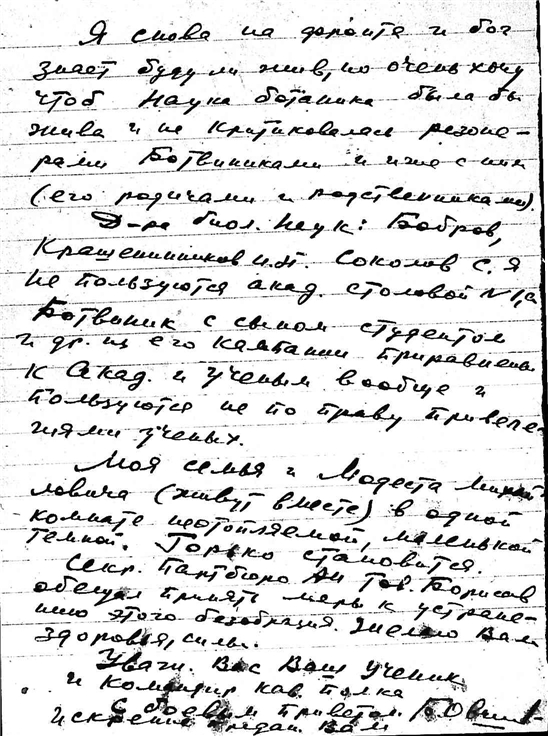 Я снова на фронте и бог
знает буду ли жив, но очень хочу
чтоб наука ботаника была бы
жива и не критиковалась резоне-
рами Ботвиниками и иже с ним
(его родичами и родственниками).
Д-ра биол. наук: Бобров,
Крашенинников И.М. Соколов С.Я
не пользуются акад. столовой №1, а
Ботвиник с сыном студентом
и др. из его кампании приравнены
к Акад. и ученым вообще и
пользуются не по праву привеле-
гиями ученых.
Моя семья и Модеста Михай
ловича (живут вместе) в одной
комнате неотопляемой, маленькой
темной. Горько становится.
Секр. Партбюро АН тов. Борисов
обещал принять меры к устране-
нию этого безобразия. Желаю Вам
здоровья, силы.
Уваж. Вас Ваш ученик
и командир кав. полка
С боевым приветом.
Искренно предан. Вам